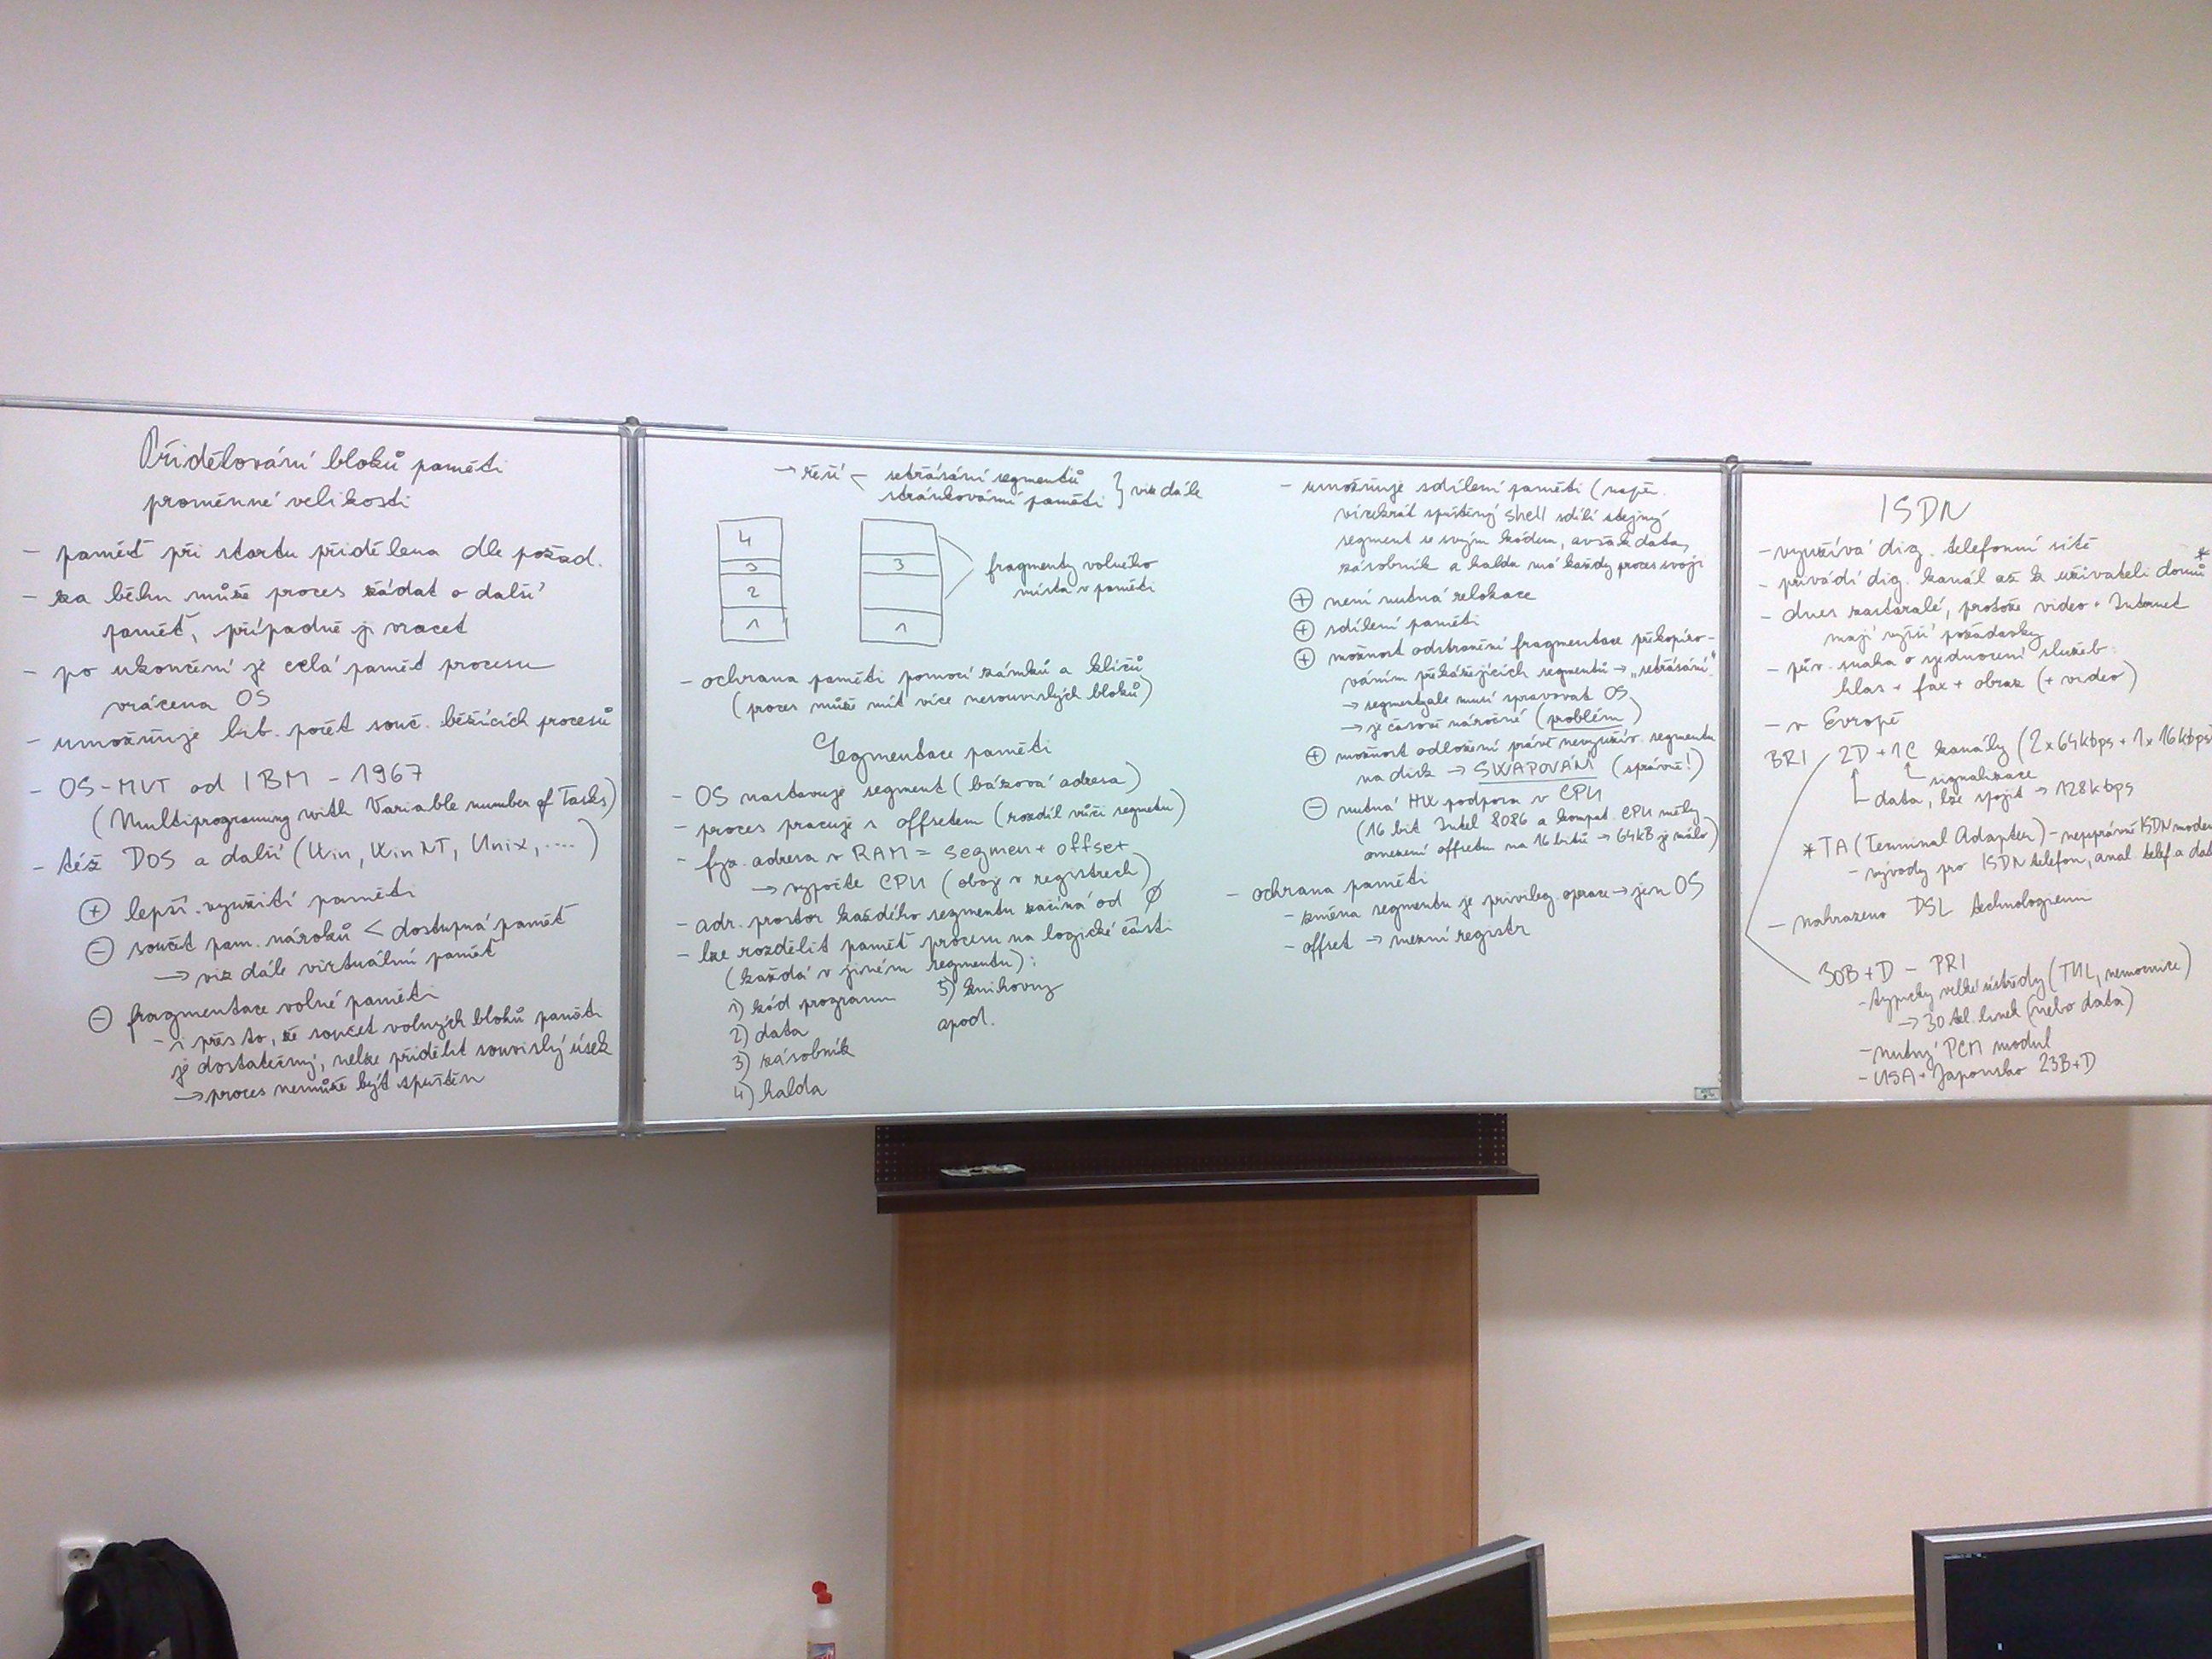 Přidělování bloků paměti
proměnné velikosti
- paměť při startu přidělena dle požad.
- za běhu může proces žádat o další
paměť, případně ji vracet
- po ukončení je celá paměť procesu
vrácena OS
- umožňuje lib. počet souč. běžících procesů
- OS-MVT od IBM - 1967
(Multiprogramming with Variable number of Tasks)
- též DOS a další (Win, Win NT, Unix, ....)
⊕ lepší využití paměti
⊖ součet pam. nároků < dostupná paměť
→ viz dále virtuální paměť
⊖ fragmentace volné paměti
- i přes to, že součet volných bloků paměti
je dostatečný, nelze přidělit souvislý úsek
→ proces nemůže být spuštěn
→ řeší < setřásání segmentů
stránkování paměti } viz dále
4
3
2
1
3
1
fragmenty volného
místa v paměti
- ochrana paměti pomocí zámků a klíčů
(proces může mít více nesouvislých bloků)
Segmentace paměti
- OS nastavuje segment (bázová adresa)
- proces pracuje s offsetem (rozdíl vůči segmetu)
- fyz. adresa v RAM = segmen + offset
→ vypočte CPU (oboje v registrech)
- adr. prostor každého segmentu začíná od Ø
- lze rozdělit paměť procesu na logické části
(každá v jiném segmentu):
1) kód programu
2) data
3) zásobník
4) halda
5) knihovny
apod.
- umožňuje sdílení paměti (např.
vícekrát spuštěný shell sdílí stejný
segment se svým kódem, avšak data,
zásobník a haldu má každý proces svoji
⊕ není nutná relokace
⊕ sdílení paměti
⊕ možnost odstranění fragmentace překopíro-
váním překážejících segmentů → „setřásání"
→ segmenty ale musí spravovat OS
→ je časově náročné (problém)
⊕ možnost odložení právě nevyužív. segmentu
na disk → SWAPOVÁNÍ (správně!)
⊖ nutná HW podpora v CPU
(16 bit Intel 8086 a kompat. CPU měly
omezení offsetu na 16 bitů → 64kB je málo)
- ochrana paměti
- změna segmentu je privileg. operace → jen OS
- offset → mezní registr
ISDN
- využívá dig. telefonní sítě
- přivádí dig. kanál až k uživateli domů *
- dnes zastaralé, protože video + Internet
mají vyšší požadavky
- pův. snaha o sjednocení služeb:
hlas + fax + obraz (+ video)
- v Evropě
BRI 2D + 1C kanály (2x64kbps + 1x16kbps
signalizace
data, lze spojit → 128kbps
* TA (Terminal Adapter) - nesprávně ISDN modem
- vývody pro ISDN telefon, anal. telef. a dat
- nahrazeno DSL technologiemi
30B + D - PRI
- typicky velké ústředny (TUL, nemocnice)
→ 30 tel. linek (nebo data)
- nutný PCM modul
- USA + Japonsko 23B+D